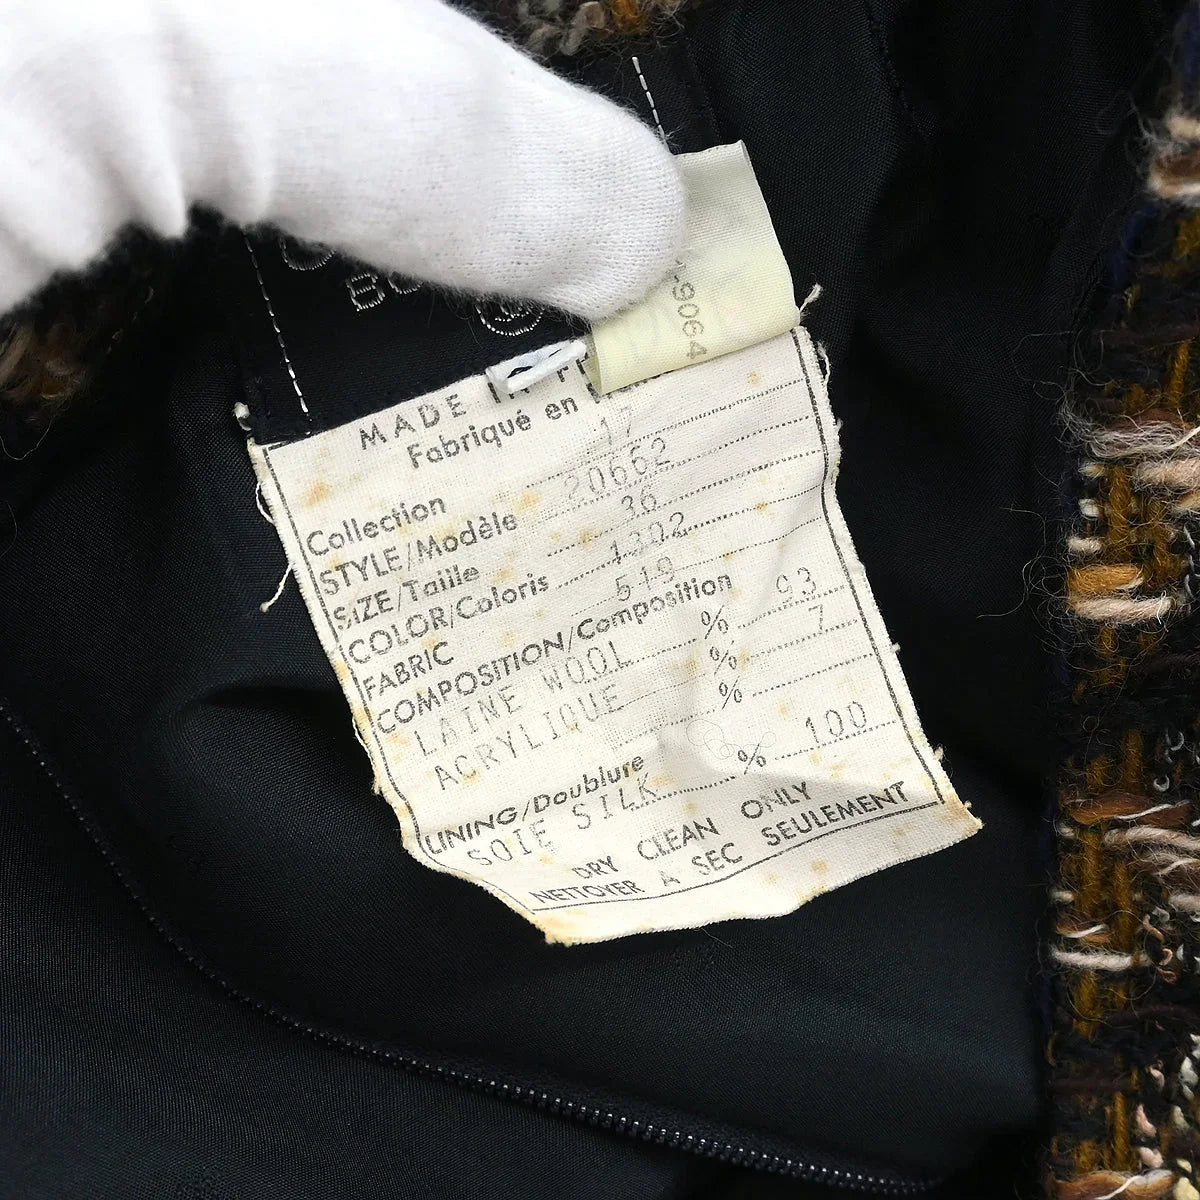 9064
MADE IN FR
Fabriqué en
Collection 17
STYLE/Modèle 20662
SIZE/Taille 36
COLOR/Coloris 1302
FABRIC 519
COMPOSITION/Composition
LAINE WOOL % 93
ACRYLIQUE % 7
%
LINING/Doublure
SOIE SILK % 100
DRY CLEAN ONLY
NETTOYER A SEC SEULEMENT